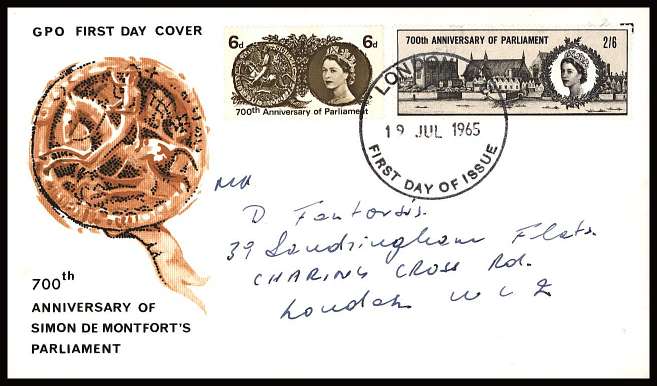 GPO FIRST DAY COVER
6d 6d
700th Anniversary of Parliament
700th ANNIVERSARY OF PARLIAMENT 2/6
LONDON
19 JUL 1965
FIRST DAY OF ISSUE
D
39 Sandringham Flats.
CHARING CROSS Rd.
London W C 2
700th
ANNIVERSARY OF
SIMON DE MONTFORT'S
PARLIAMENT